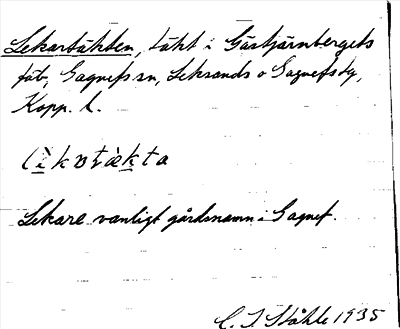 Lekartäkten, täkt i Gästjärnbergets
fäb, Gagnefs sn, Leksands o Gagnefs tg,
Kopp. l.
Lekare vanligt gårdsnamn i Gagnef.
C. I. Ståhle 1935